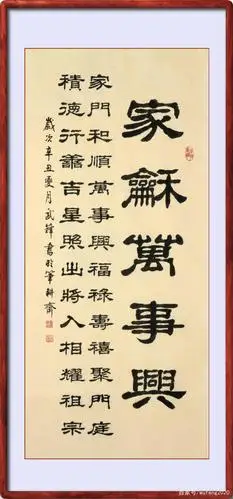 家龢萬事興
家門和順萬事興福祿壽禧聚門庭
積德行善吉星照出將入相耀祖宗
歲次辛丑夏月武鋒書於筆耕齋
百家号/wufeng2020